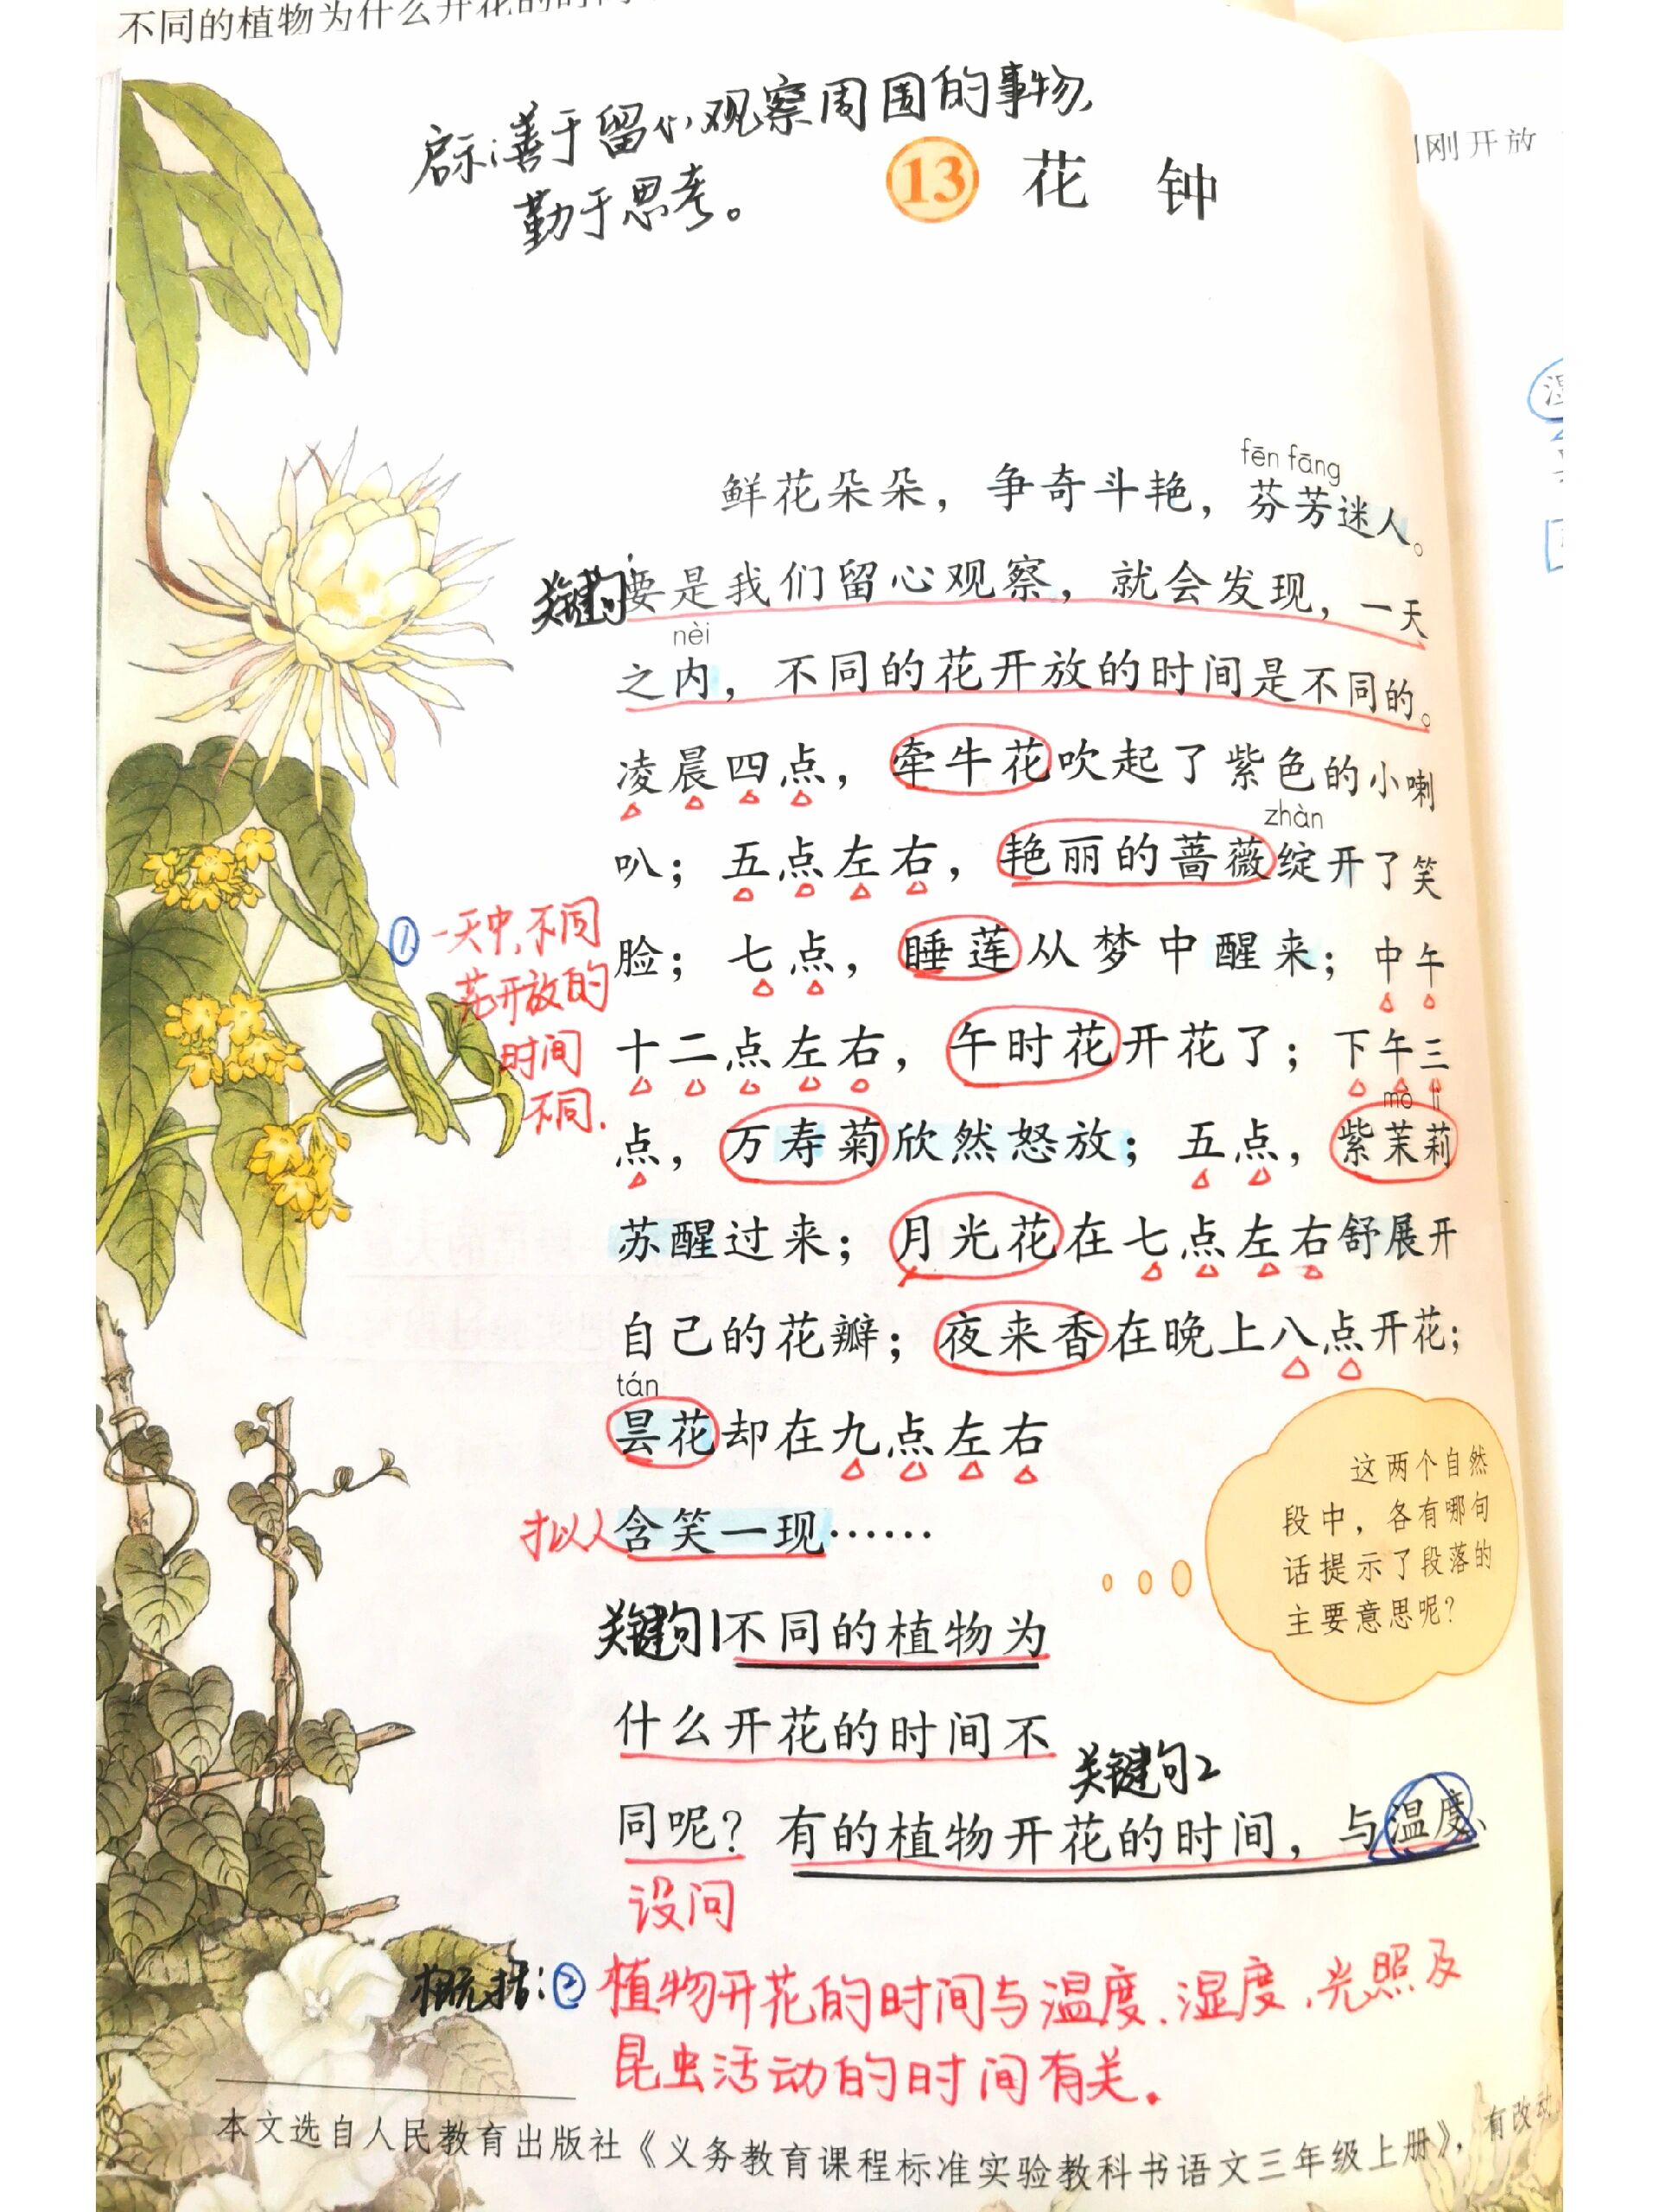 不同的植物为什么开花的时间
启示：善于留心观察周围的事物，
勤于思考。
13 花 钟
刚开放
fēn fāng
鲜花朵朵，争奇斗艳，芬芳迷人。
关键句
要是我们留心观察，就会发现，一天
nèi
之内，不同的花开放的时间是不同的。
凌晨四点，牵牛花吹起了紫色的小喇
zhàn
叭；五点左右，艳丽的蔷薇绽开了笑
脸；七点，睡莲从梦中醒来；中午
十二点左右，午时花开花了；下午三
mò lì
点，万寿菊欣然怒放；五点，紫茉莉
苏醒过来；月光花在七点左右舒展开
自己的花瓣；夜来香在晚上八点开花；
tán
昙花却在九点左右
含笑一现……
拟人
① 一天中，不同
花开放的
时间
不同.
这两个自然
段中，各有哪句
话提示了段落的
主要意思呢？
关键句1
不同的植物为
什么开花的时间不
关键句2
同呢？有的植物开花的时间，与温度、
设问
概括：② 植物开花的时间与温度、湿度、光照及
昆虫活动的时间有关。
本文选自人民教育出版社《义务教育课程标准实验教科书语文三年级上册》，有改动